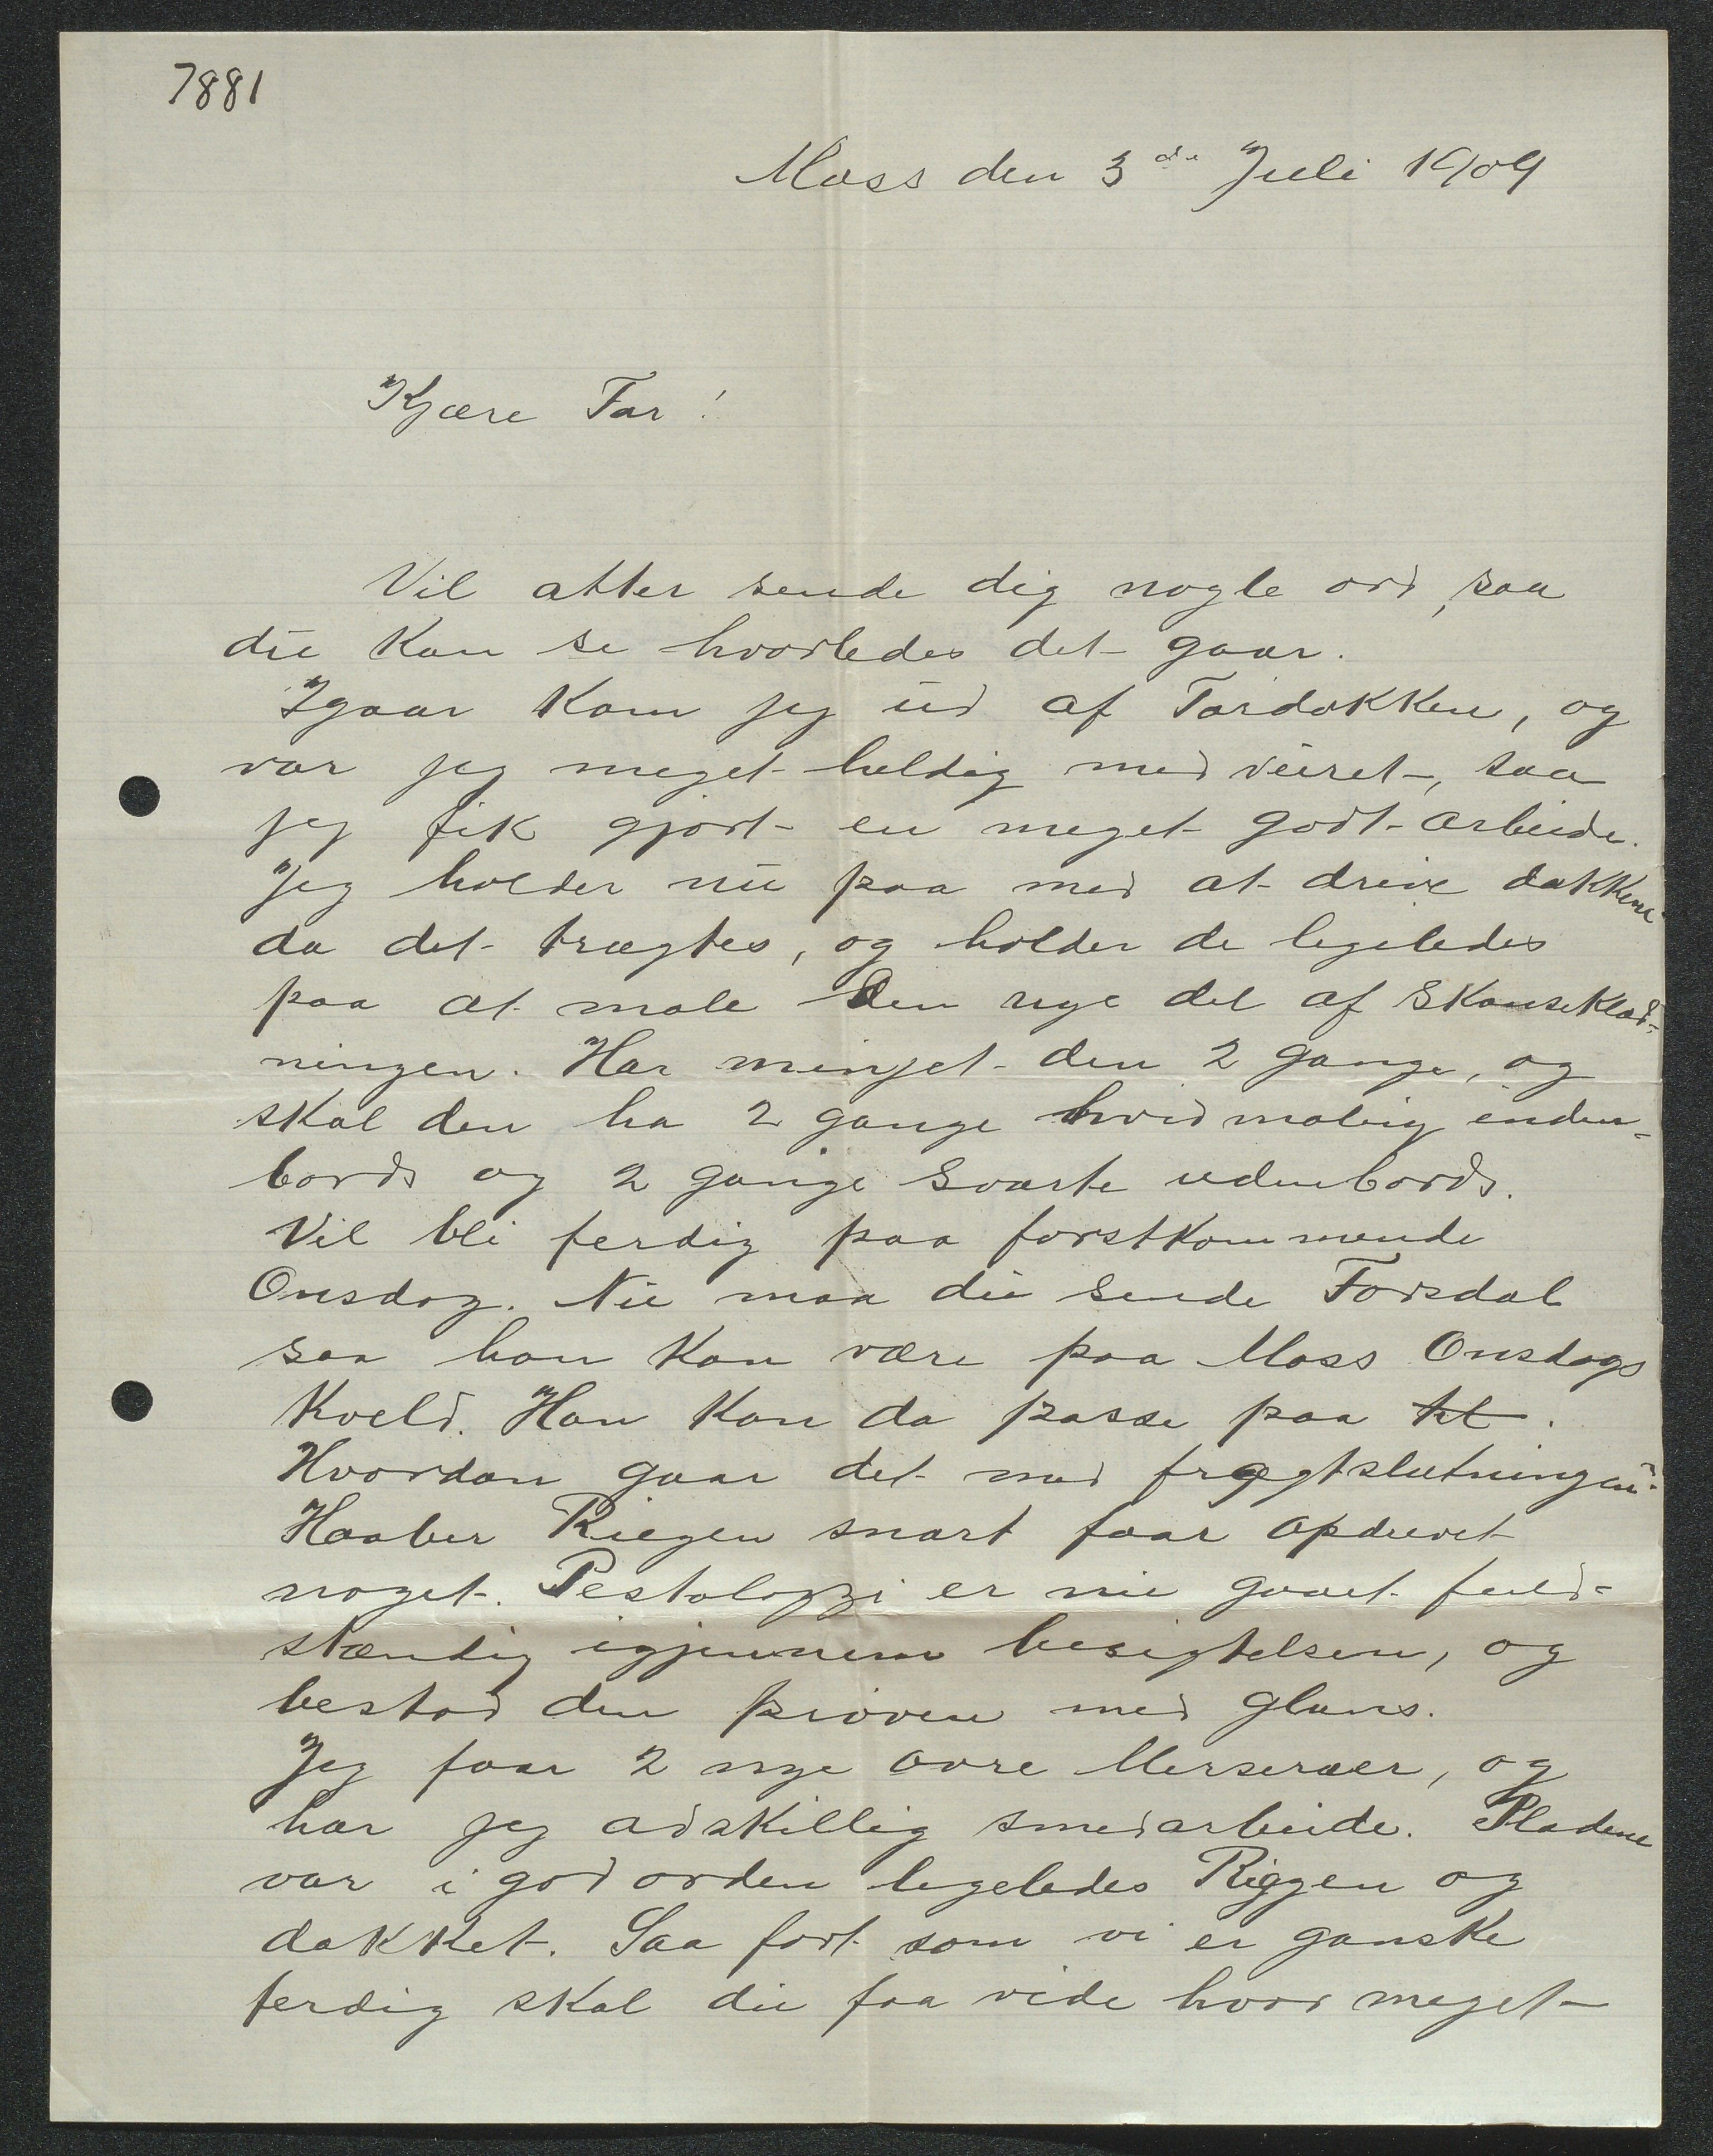 7881
Moss den 3de Juli 1909
Kjære Far!
Vil atter sende dig nogle ord, saa
du kan se hvorledes det gaar.
Igaar kom jeg ud af Tørdokken, og
var jeg meget heldig med veiret, saa
jeg fik gjort en meget godt arbeide.
Jeg holder nu paa med at drive dækkene
da det trægtes, og holder de legeledes
paa at male den nye del af Skanseklæd-
ningen. Har minjet den 2 gange, og
skal den ha 2 gange hvidmaling inden-
bords og 2 gange Svarte udenbords.
Vil bli ferdig paa førstkommende
Onsdag. Nu maa du sende Forsdal
saa han kan være paa Moss Onsdags
Kveld. Han kan da passe paa
Hvordan gaar det med fragtslutningen.
Haaber Riegen snart faar opdrevet
noget. Pestolozzi er nu gaaet fuld-
stændig igjennem besigtelsen, og
bestod den prøven med glans.
Jeg faar 2 nye øvre Merseraaer, og
har jeg adskillig smedarbeide. Pladene
var i god orden legeledes Riggen og
dækket. Saa fort som vi er ganske
ferdig skal du faa vide hvor meget